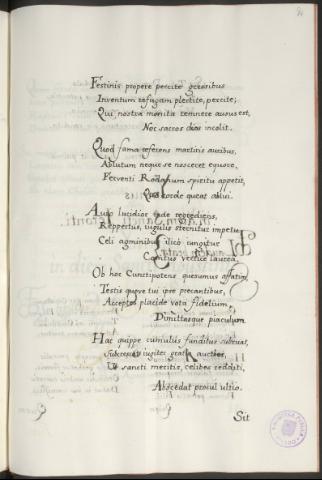 Festinis propere percite gressibus
Inventum refugam plectite, percite;
Qui nostra monita temnere ausus est,
Nec sacros dios incolit.
Quod fama referens martiris auribus,
Ablutum neque se nosceret equore,
Ferventi Ramnum spiritu appetit,
Quo corde queat ablui.
Auro lucidior inde regrediens,
Reppertus, iugulis sternitur impetu;
Celi agminibus ilico iungitur
Comitus vertice laurea.
Ob hoc Cunctipotens quesumus affatim,
Testis quove tui ipre precantibus,
Acceptes placide vota fidelium,
Dimittasque piaculum.
Hac quippe cumulus funditus subruat,
Succrescat iugiter gratia
Ut sancti meritis, celibes redditi,
Abscedat procul ultio.
Sit